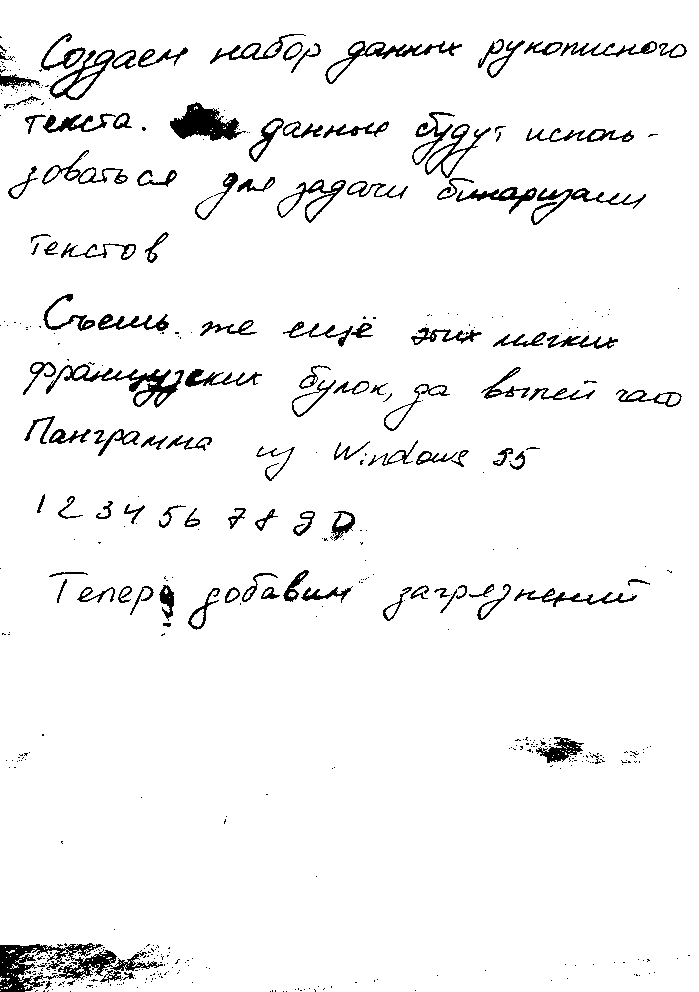 Создаем набор данных рукописного
текста. данные будут исполь-
зоваться для задачи бинаризации
текстов
Съешь же ещё этих мягких
французских булок, да выпей чаю
Панграмма из Windows 95
1 2 3 4 5 6 7 8 9 0
Теперь добавим загрязнений